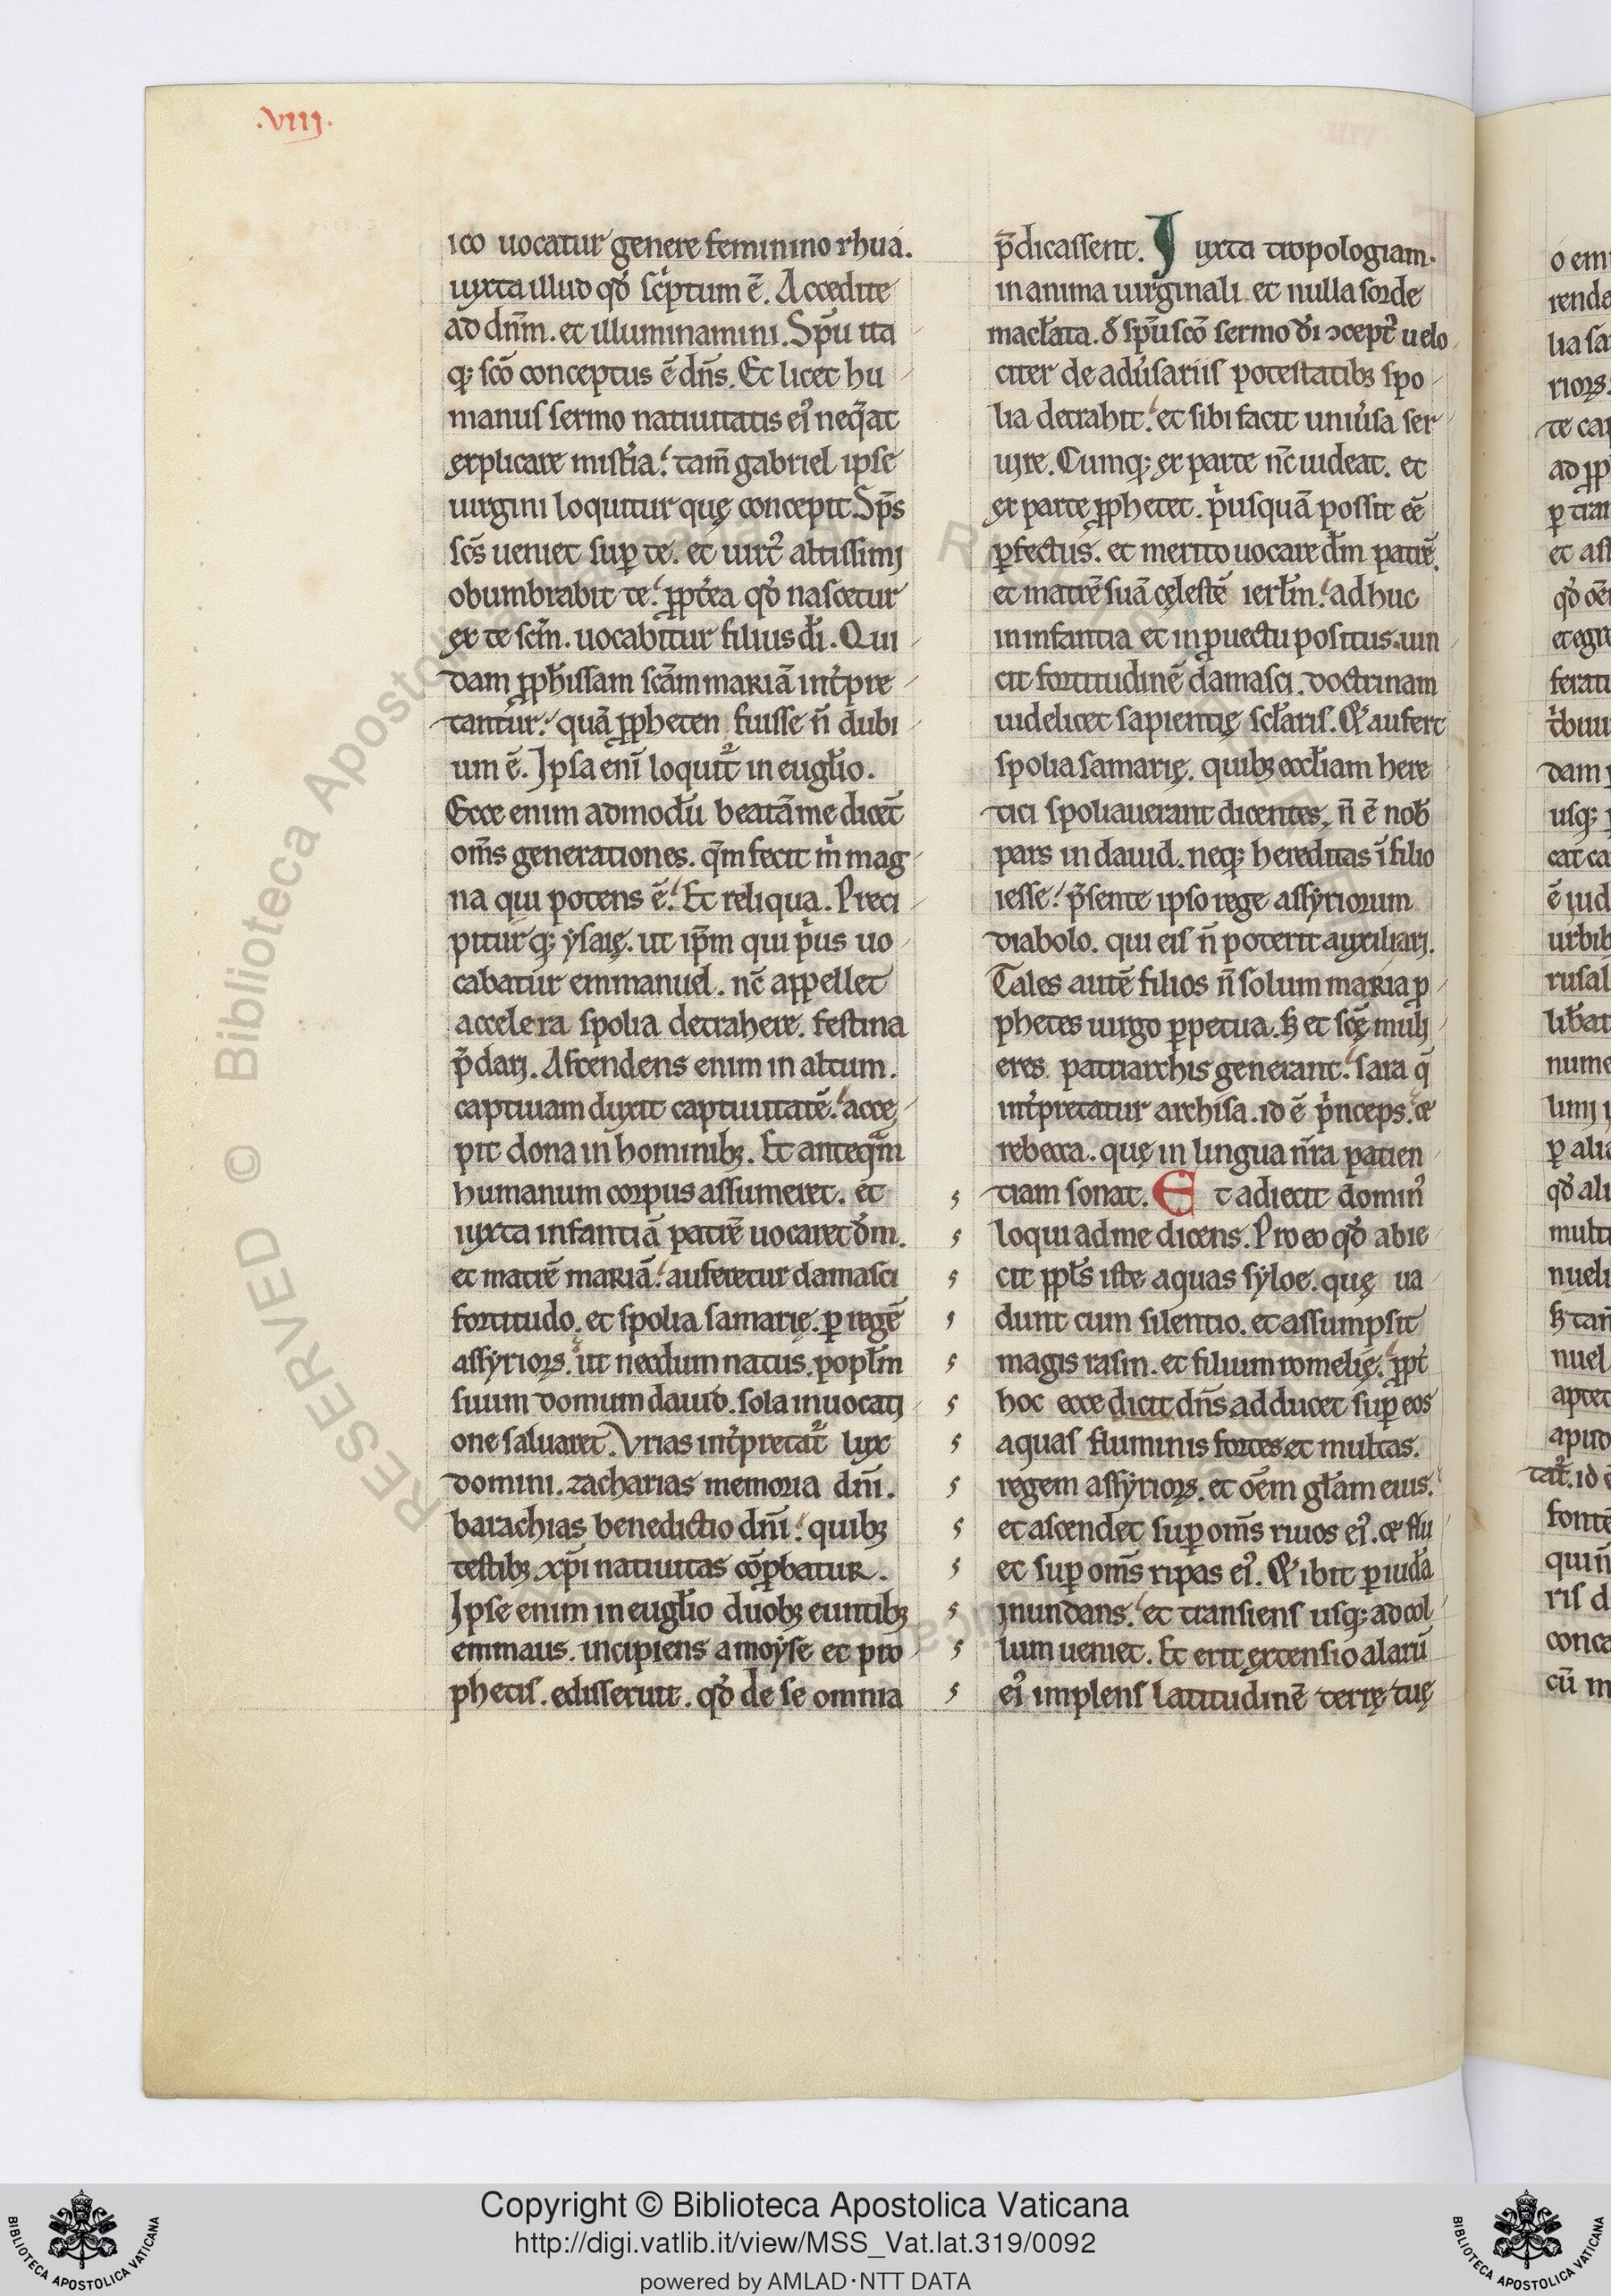 .VIIJ.
ico uocatur genere feminino rhua.
iuxta illud qđ sc̓ptum ē. Accedite
ad dn̄m. et illuminamini. Sp̄u ita
q; sc̄o conceptus ē dn̄s. Et licet hu
manus sermo natiuitatis eiꝰ neq̄at
explicare mist̓ia. tam̄ gabriel ipse
uirgini loquitur quę concepit. Sp̄s
sc̄s ueniet suꝑ te. et uirtꝰ altissimj
obumbrabit te. ꝓpt̓ea qđ nascetur
ex te sc̄m. uocabitur filius dī. Qui
dam ꝓph̓issam sc̄am mariā int̓pre
tantur. quā ꝓpheten fuisse n̄ dubi
um ē. Ipsa eni̅ loquit᷑ in eugl̄io.
Ecce enim admodū beatā me dicēt
om̄s generationes. qm̄ fecit m̓ mag
na qui potens ē. Et reliqua. Preci
pitur q; ẏsaię. ut ip̄m qui p̓us uo
cabatur emmanuel. nc̄ appellet
accelera spolia detrahere. festina
p̄darj. Ascendens enim in altum.
captiuam duxit captiuitatē. acce
pit dona in hominibꝫ. Et anteqᵃm
humanum corpus assumeret. et
iuxta infantiā patrē uocaret dm̄.
et matrē mariā. auferetur damasci
fortitudo. et spolia samarię. ꝑ regē
assẏrioꝝ. ut necdum natus. popl̄m
suum domum dauid. sola inuocatj
one saluaret. Vrias int̓pretat᷑ lux
domini. zacharias memoria dn̄i.
barachias benedictio dn̄i. quibꝫ
testibꝫ xp̄i natiuitas cōꝓbatur.
Ipse enim in eugl̄io duobꝫ euntibꝫ
emmaus. incipiens a moẏse et pro
phetis. edisseruit. qđ de se omnia
p̄dicassent. Iuxta tropologiam.
in anima uirginali et nulla sorde
macl̄ata. đ sp̄u sc̄o sermo dī ↄceptꝰ uelo
citer de adu̓sariis potestatibꝫ spo
lia detrahit. et sibi facit uniu̓sa ser
uire. Cumq; ex parte nc̄ uideat. et
ex parte ꝓphetet. p̓usquā possit eē
ꝑfectus. et merito uocare dm̄ patrē.
et matrē suā cęlestē ierl̄m. adhuc
in infantia et in ꝓuectu positus. uin
cit fortitudinē damasci. doctrinam
uidelicet sapientię scl̄aris. & aufert
spolia samarię. quibꝫ eccl̄iam here
tici spoliauerant dicentes. n̄ ē nob̄
pars in dauid. neq; hereditas ī filio
iesse. p̄sente ipso rege assẏriorum
diabolo. qui eis n̄ poterit auxiliarj.
Tales autē filios n̄ solum maria ꝓ
phetes uirgo ꝑpetua. sꝫ et sc̄ę muli
eres patriarchis generant. sara q̄
int̓pretatur archisa. id ē p̓nceps. &
rebecca. quę in lingua nr̄a patien
tiam sonat. Et adiecit dominꝰ
loqui ad me dicens. Pro eo qđ abie
cit ppl̄s iste aquas sẏloe. quę ua
dunt cum silentio. et assumpsit
magis rasin. et filium romelię. ꝓpt̓
hoc ecce dicit dn̄s adducet suꝑ eos
aquas fluminis fortes et multas.
regem assẏrioꝝ. et oēm gl̄am eius.
et ascendet suꝑ om̄s riuos eiꝰ. & flu
et suꝑ om̄s ripas eiꝰ. & ibit ꝑ iudā
inundans. et transiens usq; ad col
lum ueniet. Et erit extensio alarū
eiꝰ implens latitudinē terrę tuę
Copyright © Biblioteca Apostolica Vaticana
http://digi.vatlib.it/view/MSS_Vat.lat.319/0092
powered by AMLAD·NTT DATA